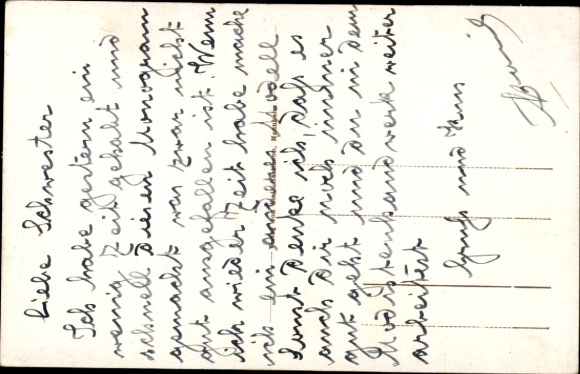 Liebe Schwester
Ich habe gestern ein
wenig Zeit gehabt und
schnell diesen Monogram
gemacht was zwar nicht
gut ausgefallen ist. Wenn
ich wieder Zeit habe mache
ich ein anderes Modell
Sonst denke ich, daß es
auch Dir noch immer
gut geht und du in dem
Modistenhandwerk weiter
arbeitest
Gruß und Kuss